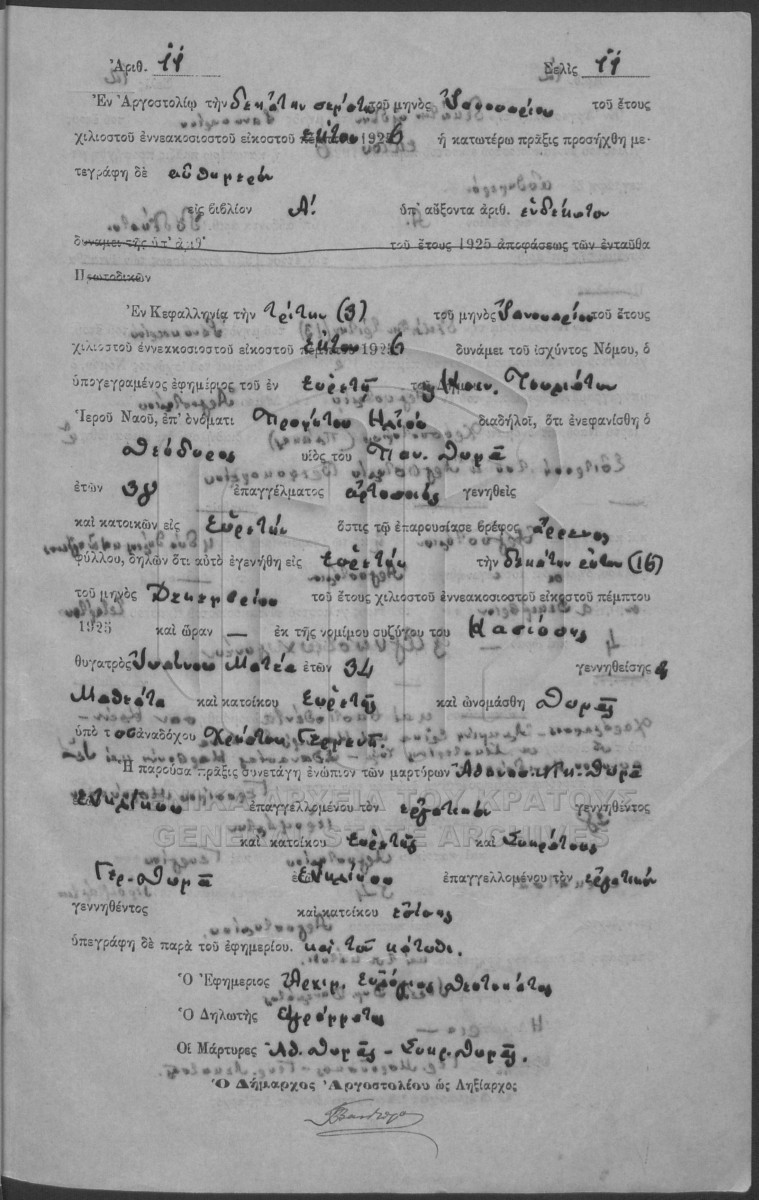 Ἀριθ. 11 Σελὶς 11
Ἐν Ἀργοστολίῳ τὴν δεκάτην τοῦ μηνὸς Ἰανουαρίου τοῦ ἔτους
χιλιοστοῦ ἐννεακοσιοστοῦ εἰκοστοῦ ἕκτου 1926 ἡ κατωτέρω πρᾶξις προσήχθη με-
τεγράφη δὲ αὐθημερόν
εἰς βιβλίον Α! ὑπ' αὔξοντα ἀριθ. ἑνδέκατον
δυνάμει τῆς ὑπ' ἀριθ τοῦ ἔτους 1925 ἀποφάσεως τῶν ἐνταῦθα
Πρωτοδικῶν
Ἐν Κεφαλληνίᾳ τὴν τρίτην (3) τοῦ μηνὸς Ἰανουαρίου τοῦ ἔτους
χιλιοστοῦ ἐννεακοσιοστοῦ εἰκοστοῦ ἕκτου 1926 δυνάμει τοῦ ἰσχύντος Νόμου, ὁ
ὑπογεγραμένος ἐφημέριος τοῦ ἐν Εὐρετῇ
Ἱεροῦ Ναοῦ, ἐπ' ὀνόματι Προφήτου Ἠλιοῦ διαδηλοῖ, ὅτι ἐνεφανίσθη ὁ
Θεόδωρος υἱὸς τοῦ Παν. Θωμᾶ
ἐτῶν 38 ἐπαγγέλματος γενηθεὶς
καὶ κατοικῶν εἰς Εὐρετὴν ὅστις τῷ ἐπαρουσίασε βρέφος ἄρρενος
φύλλου, δηλῶν ὅτι αὐτὸ ἐγενήθη εἰς Εὐρετὴν τὴν δεκάτην ἕκτην (16)
τοῦ μηνὸς Δεκεμβρίου τοῦ ἔτους χιλιοστοῦ ἐννεακοσιοστοῦ εἰκοστοῦ πέμπτου
1925 καὶ ὥραν — ἐκ τῆς νομίμου συζύγου του
θυγατρὸς ἐτῶν 34 γεννηθείσης
καὶ κατοίκου Εὐρετῆς καὶ ὠνομάσθη Θωμᾶς
ὑπὸ τοῦ ἀναδόχου Χρήστου
Ἡ παροῦσα πρᾶξις συνετάγη ἐνώπιον τῶν μαρτύρων Ἀθανασ. Νικ. Θωμᾶ
Ἐνηλίκου ἐπαγγελλομένου τὸν ἐργατικὸν γεννηθέντος
καὶ κατοίκου Εὐρετῆς καὶ Σωκράτους
Γερ. Θωμᾶ Ἐνηλίκου ἐπαγγελλομένου τὸν ἐργατικὸν
γεννηθέντος καὶ κατοίκου ἐπίσης
ὑπεγράφη δὲ παρὰ τοῦ ἐφημερίου. καὶ τῶν κάτωθι.
Ὁ Ἐφημεριος Ἀρχιμ. Εὐλόγιος Θεοτοκάτος
Ὁ Δηλωτὴς Ἀγράμματος
Οἱ Μάρτυρες Ἀθ. Θωμᾶς - Σωκρ. Θωμᾶς.
Ὁ Δήμαρχος Ἀργοστολέου ὡς Ληξίαρχος
ΓΕΝΙΚΑ ΑΡΧΕΙΑ ΤΟΥ ΚΡΑΤΟΥΣ
GENERAL STATE ARCHIVES